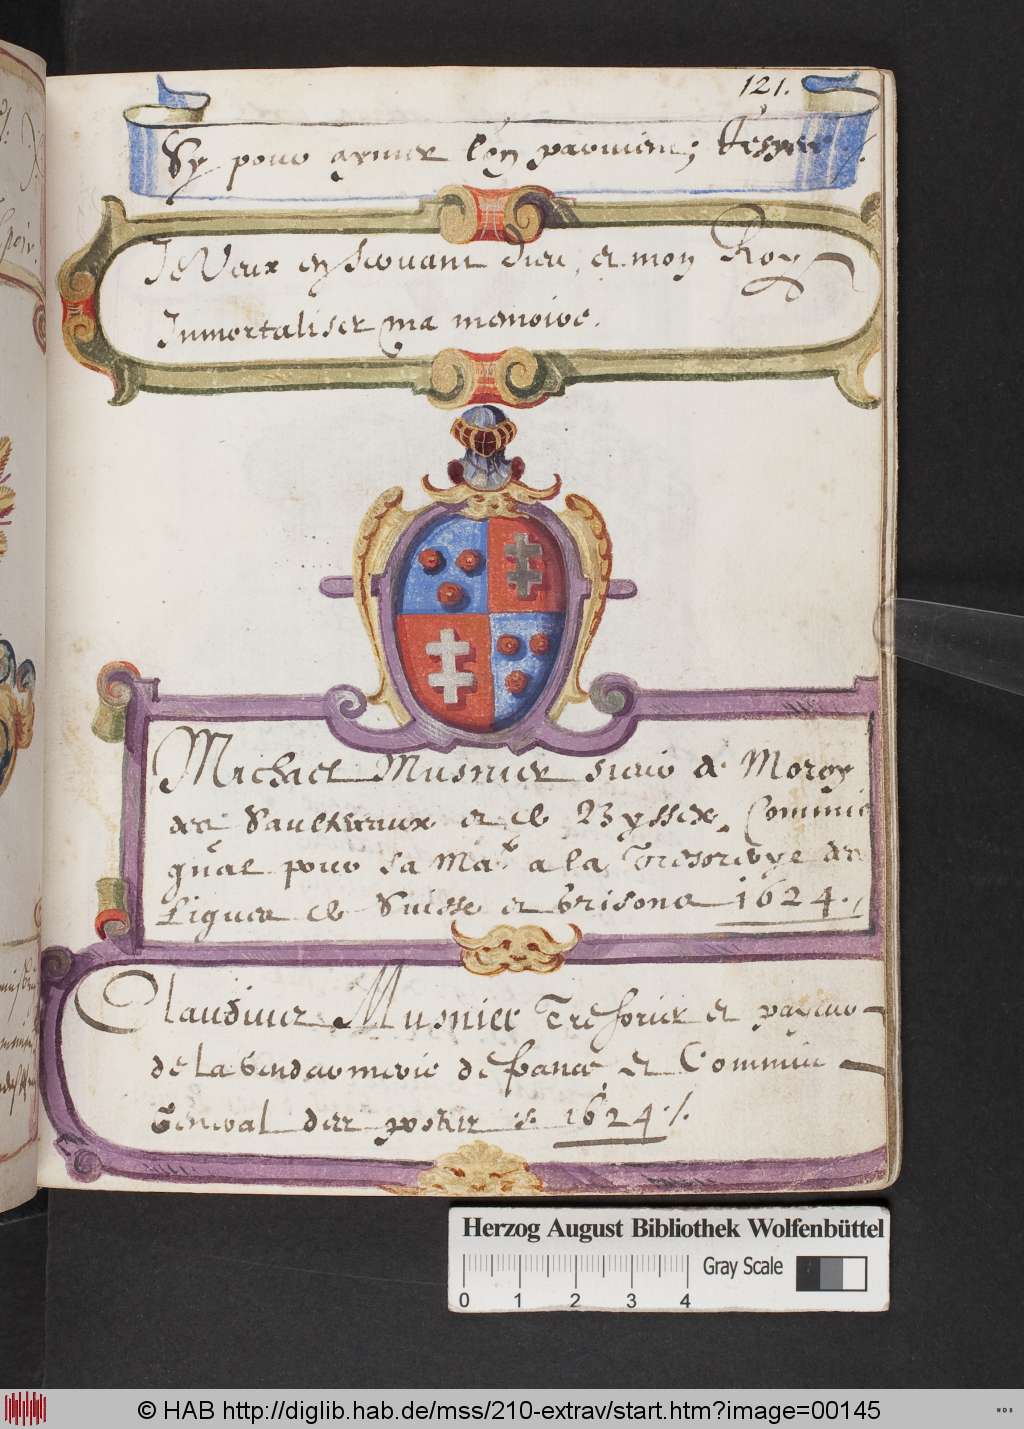 121.
Sy pour aymer l'on parvient; J'espere /.
Je Veux en servant Dieu, et mon Roy
Immortaliser ma memoire.
Michael Musnier sieur de Moroy
des Saultereaux et de Byssex, Commis
gnãl pour sa Mate a la Tresorerye des
Ligues de Suisse et Grisons 1624./
Claudius Musnier Tresorier et payeur
de la Gendarmerie de france, et Commis
General des postes 1624./.
Herzog August Bibliothek Wolfenbüttel
Gray Scale
0 1 2 3 4
© HAB http://diglib.hab.de/mss/210-extrav/start.htm?image=00145